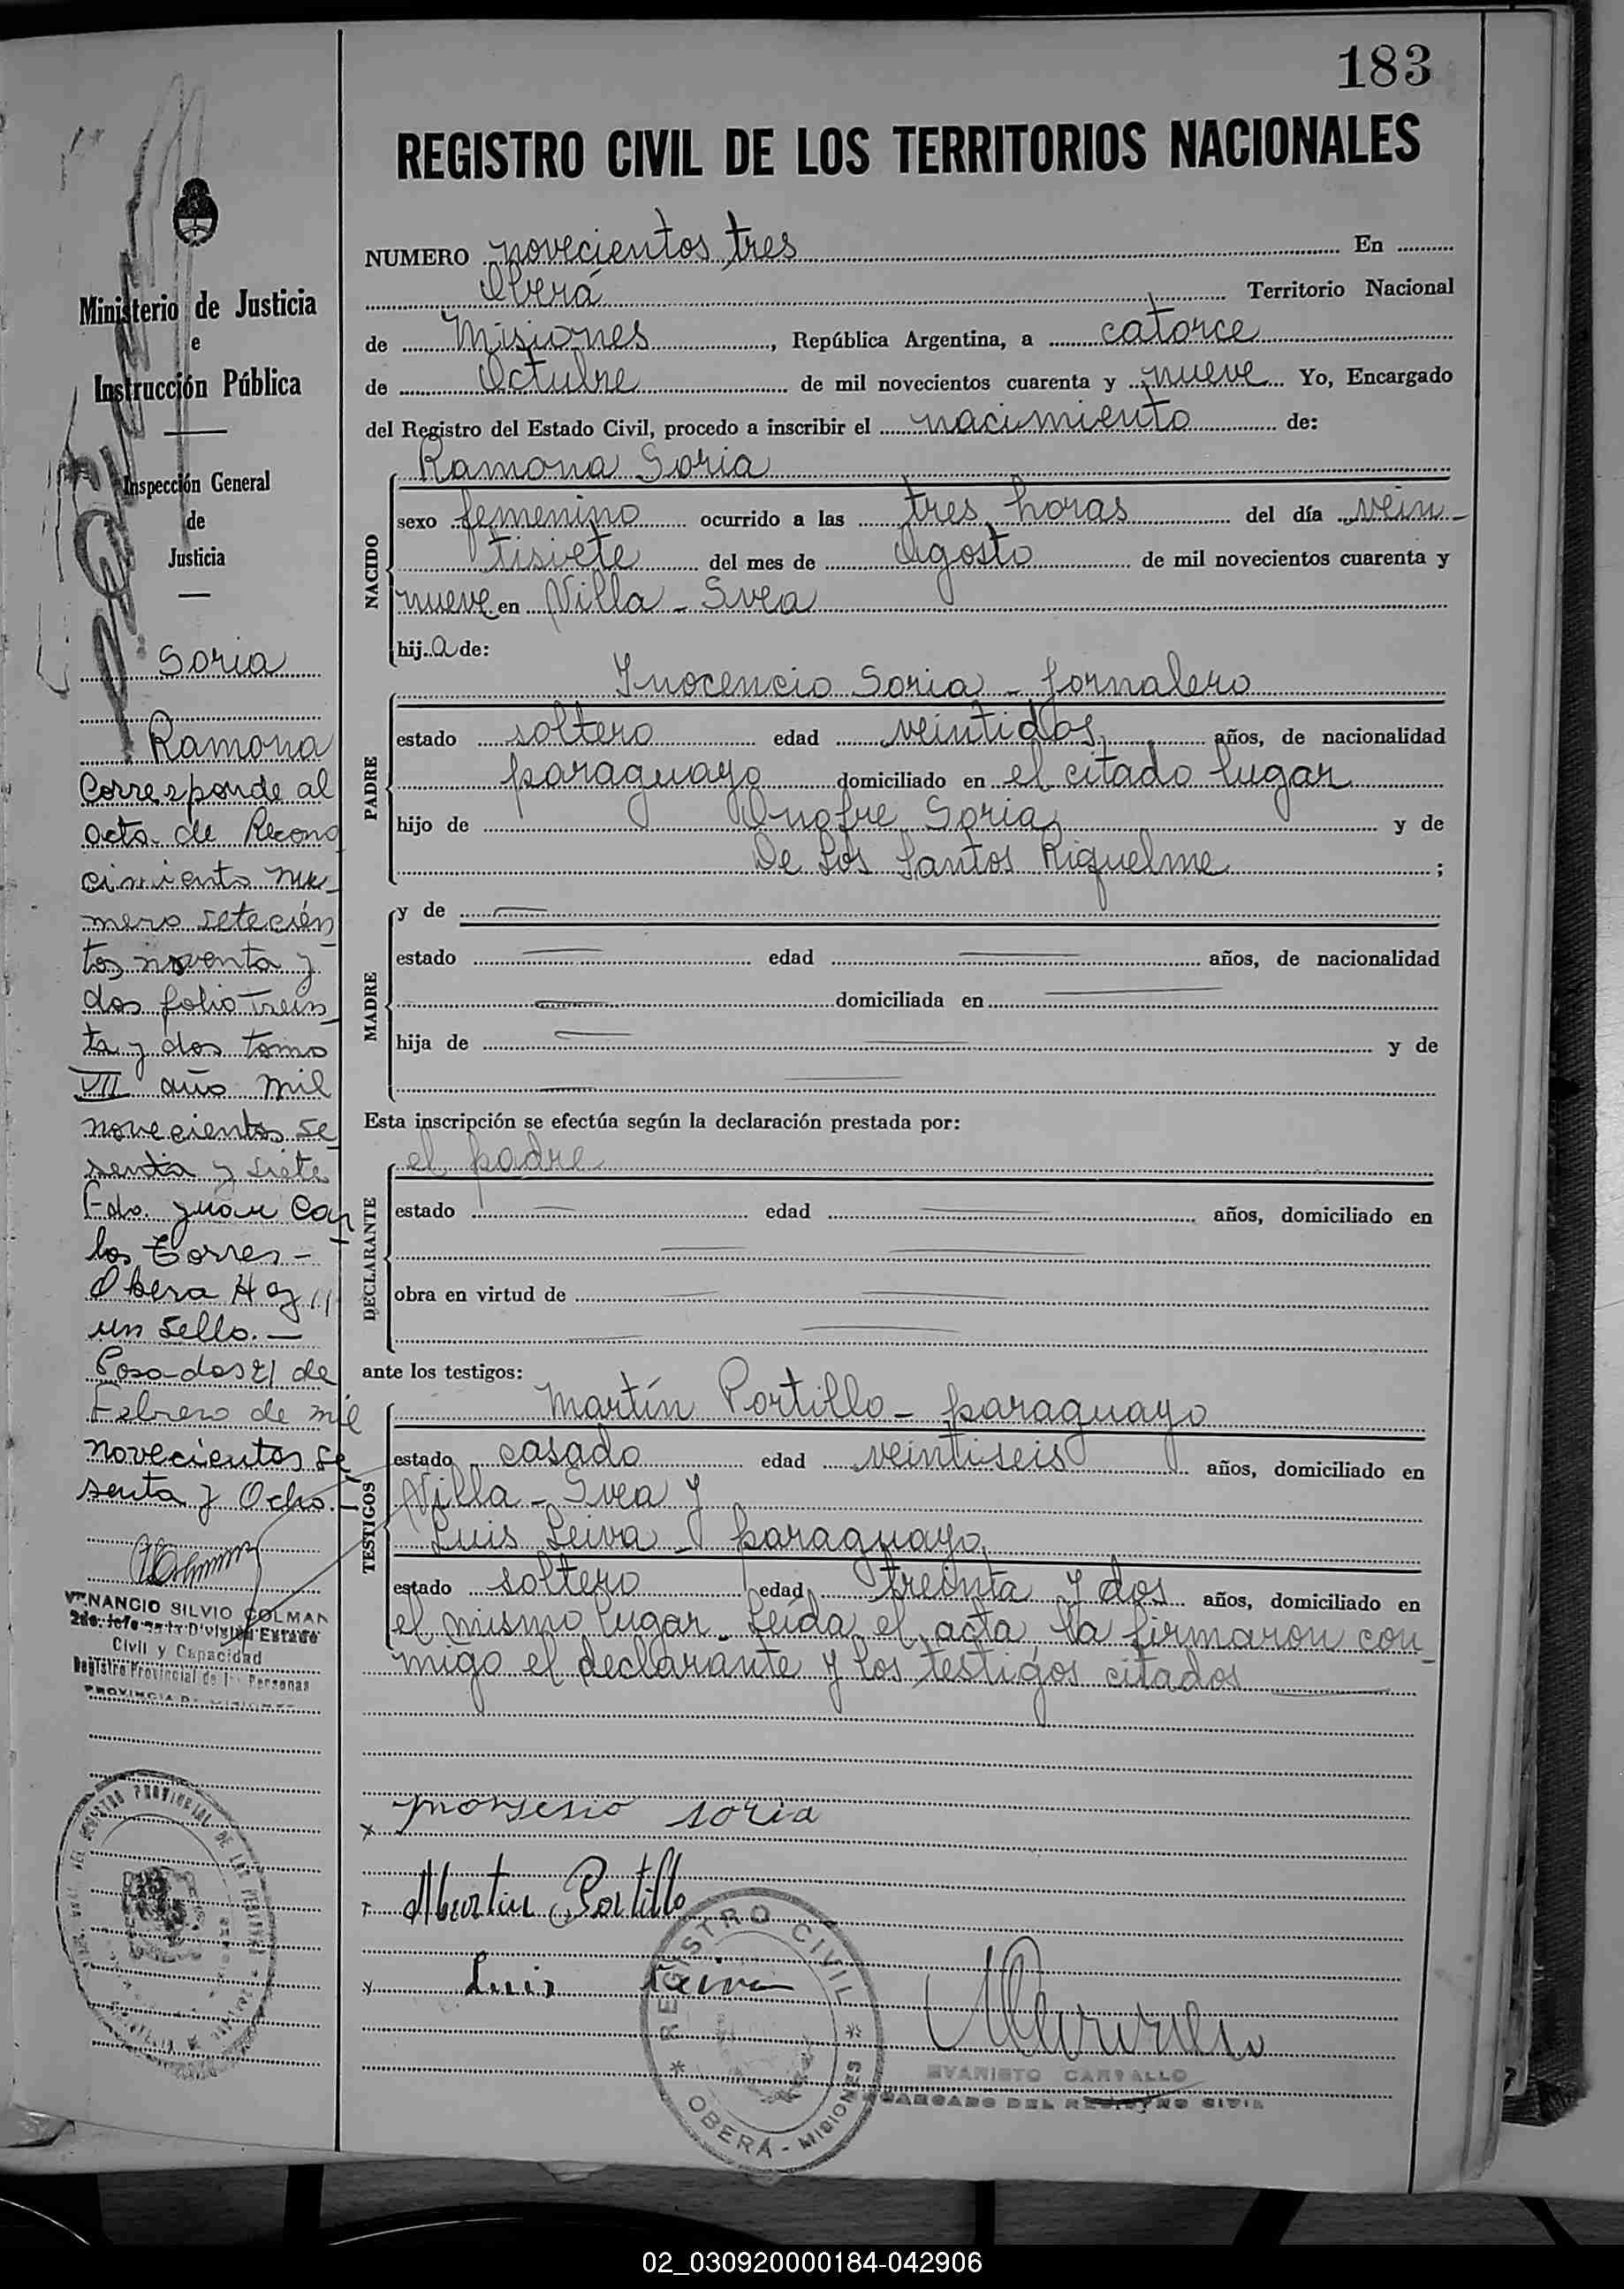 183
REGISTRO CIVIL DE LOS TERRITORIOS NACIONALES
NUMERO novecientos tres En
Oberá Territorio Nacional
de Misiones, República Argentina, a catorce
de Octubre de mil novecientos cuarenta y nueve Yo, Encargado
del Registro del Estado Civil, procedo a inscribir el nacimiento de:
NACIDO
Ramona Soria
sexo femenino ocurrido a las tres horas del día vein-
tisiete del mes de Agosto de mil novecientos cuarenta y
nueve en Villa - Svea
hij a de:
PADRE
Inocencio Soria - jornalero
estado soltero edad veintidos años, de nacionalidad
paraguayo domiciliado en el citado lugar
hijo de Onofre Soria y de
De Los Santos Riquelme ;
MADRE
y de
estado edad años, de nacionalidad
domiciliada en
hija de y de
Esta inscripción se efectúa según la declaración prestada por:
DECLARANTE
el padre
estado edad años, domiciliado en
obra en virtud de
ante los testigos:
TESTIGOS
Martín Portillo - paraguayo
estado casado edad veintiseis años, domiciliado en
Villa - Svea y
Luis Leiva - paraguayo
estado soltero edad treinta y dos años, domiciliado en
el mismo lugar. Leída el acta la firmaron con-
migo el declarante y los testigos citados
soria
Portillo
Luis Leiva
REGISTRO CIVIL
OBERÁ - MISIONES
EVARISTO CARVALLO
ENCARGADO DEL REGISTRO CIVIL
Ministerio de Justicia
e
Instrucción Pública
Inspección General
de
Justicia
Soria
Ramona
Corresponde al
acta de Recono
cimiento nu-
mero setecien-
tos noventa y
dos folio trein-
ta y dos tomo
VII año mil
novecientos se
senta y siete
Fdo. Juan Car-
los Torres -
Obera Hay
un sello. -
Posadas 21 de
Febrero de mil
novecientos se
senta y Ocho. -
VENANCIO SILVIO COLMAN
2do. Jefe en la División Estado
Civil y Capacidad
Registro Provincial de las Personas
PROVINCIA DE MISIONES
REGISTRO PROVINCIAL DE LAS PERSONAS
02_030920000184-042906